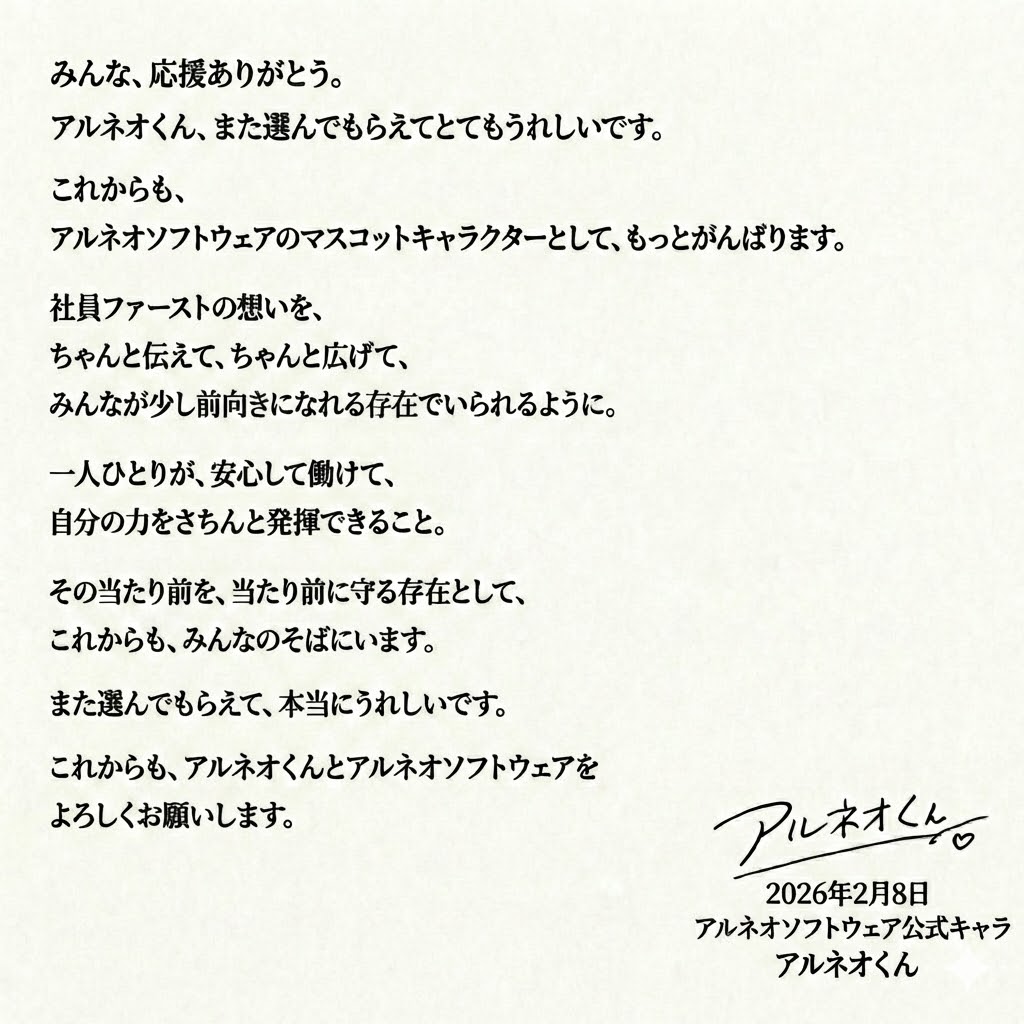 みんな、応援ありがとう。
アルネオくん、また選んでもらえてとてもうれしいです。
これからも、
アルネオソフトウェアのマスコットキャラクターとして、もっとがんばります。
社員ファーストの想いを、
ちゃんと伝えて、ちゃんと広げて、
みんなが少し前向きになれる存在でいられるように。
一人ひとりが、安心して働けて、
自分の力をさちんと発揮できること。
その当たり前を、当たり前に守る存在として、
これからも、みんなのそばにいます。
また選んでもらえて、本当にうれしいです。
これからも、アルネオくんとアルネオソフトウェアを
よろしくお願いします。
アルネオくん
2026年2月8日
アルネオソフトウェア公式キャラ
アルネオくん